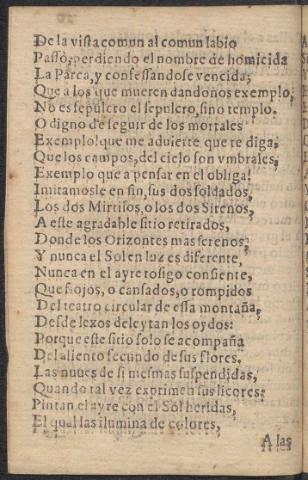 De la vista comun al comun labio
Passò, perdiendo el nombre de homicida
La Parca, y confessandose vencida;
Que a los que mueren dandonos exemplo,
No es sepulcro el sepulcro, sino templo.
O digno de seguir de los mortales
Exemplo! que me advierte que te diga,
Que los campos, del cielo son vmbrales,
Exemplo que a pensar en el obliga!
Imitamosle en fin, sus dos soldados,
Los dos Mirtisos, o los dos Sirenos,
A este agradable sitio retirados,
Donde los Orizontes mas serenos;
Y nunca el Sol en luz es diferente,
Nunca en el ayre tosigo consiente,
Que flojos, o cansados, o rompidos
Del teatro circular de essa montaña,
Desde lexos deleytan los oydos:
Porque este sitio solo se acompaña
Del aliento fecundo de sus flores.
Las nuues de si mesmas suspendidas,
Quando tal vez exprimen sus licores;
Pintan el ayre con el Sol heridas,
El qual las ilumina de colores,
A las